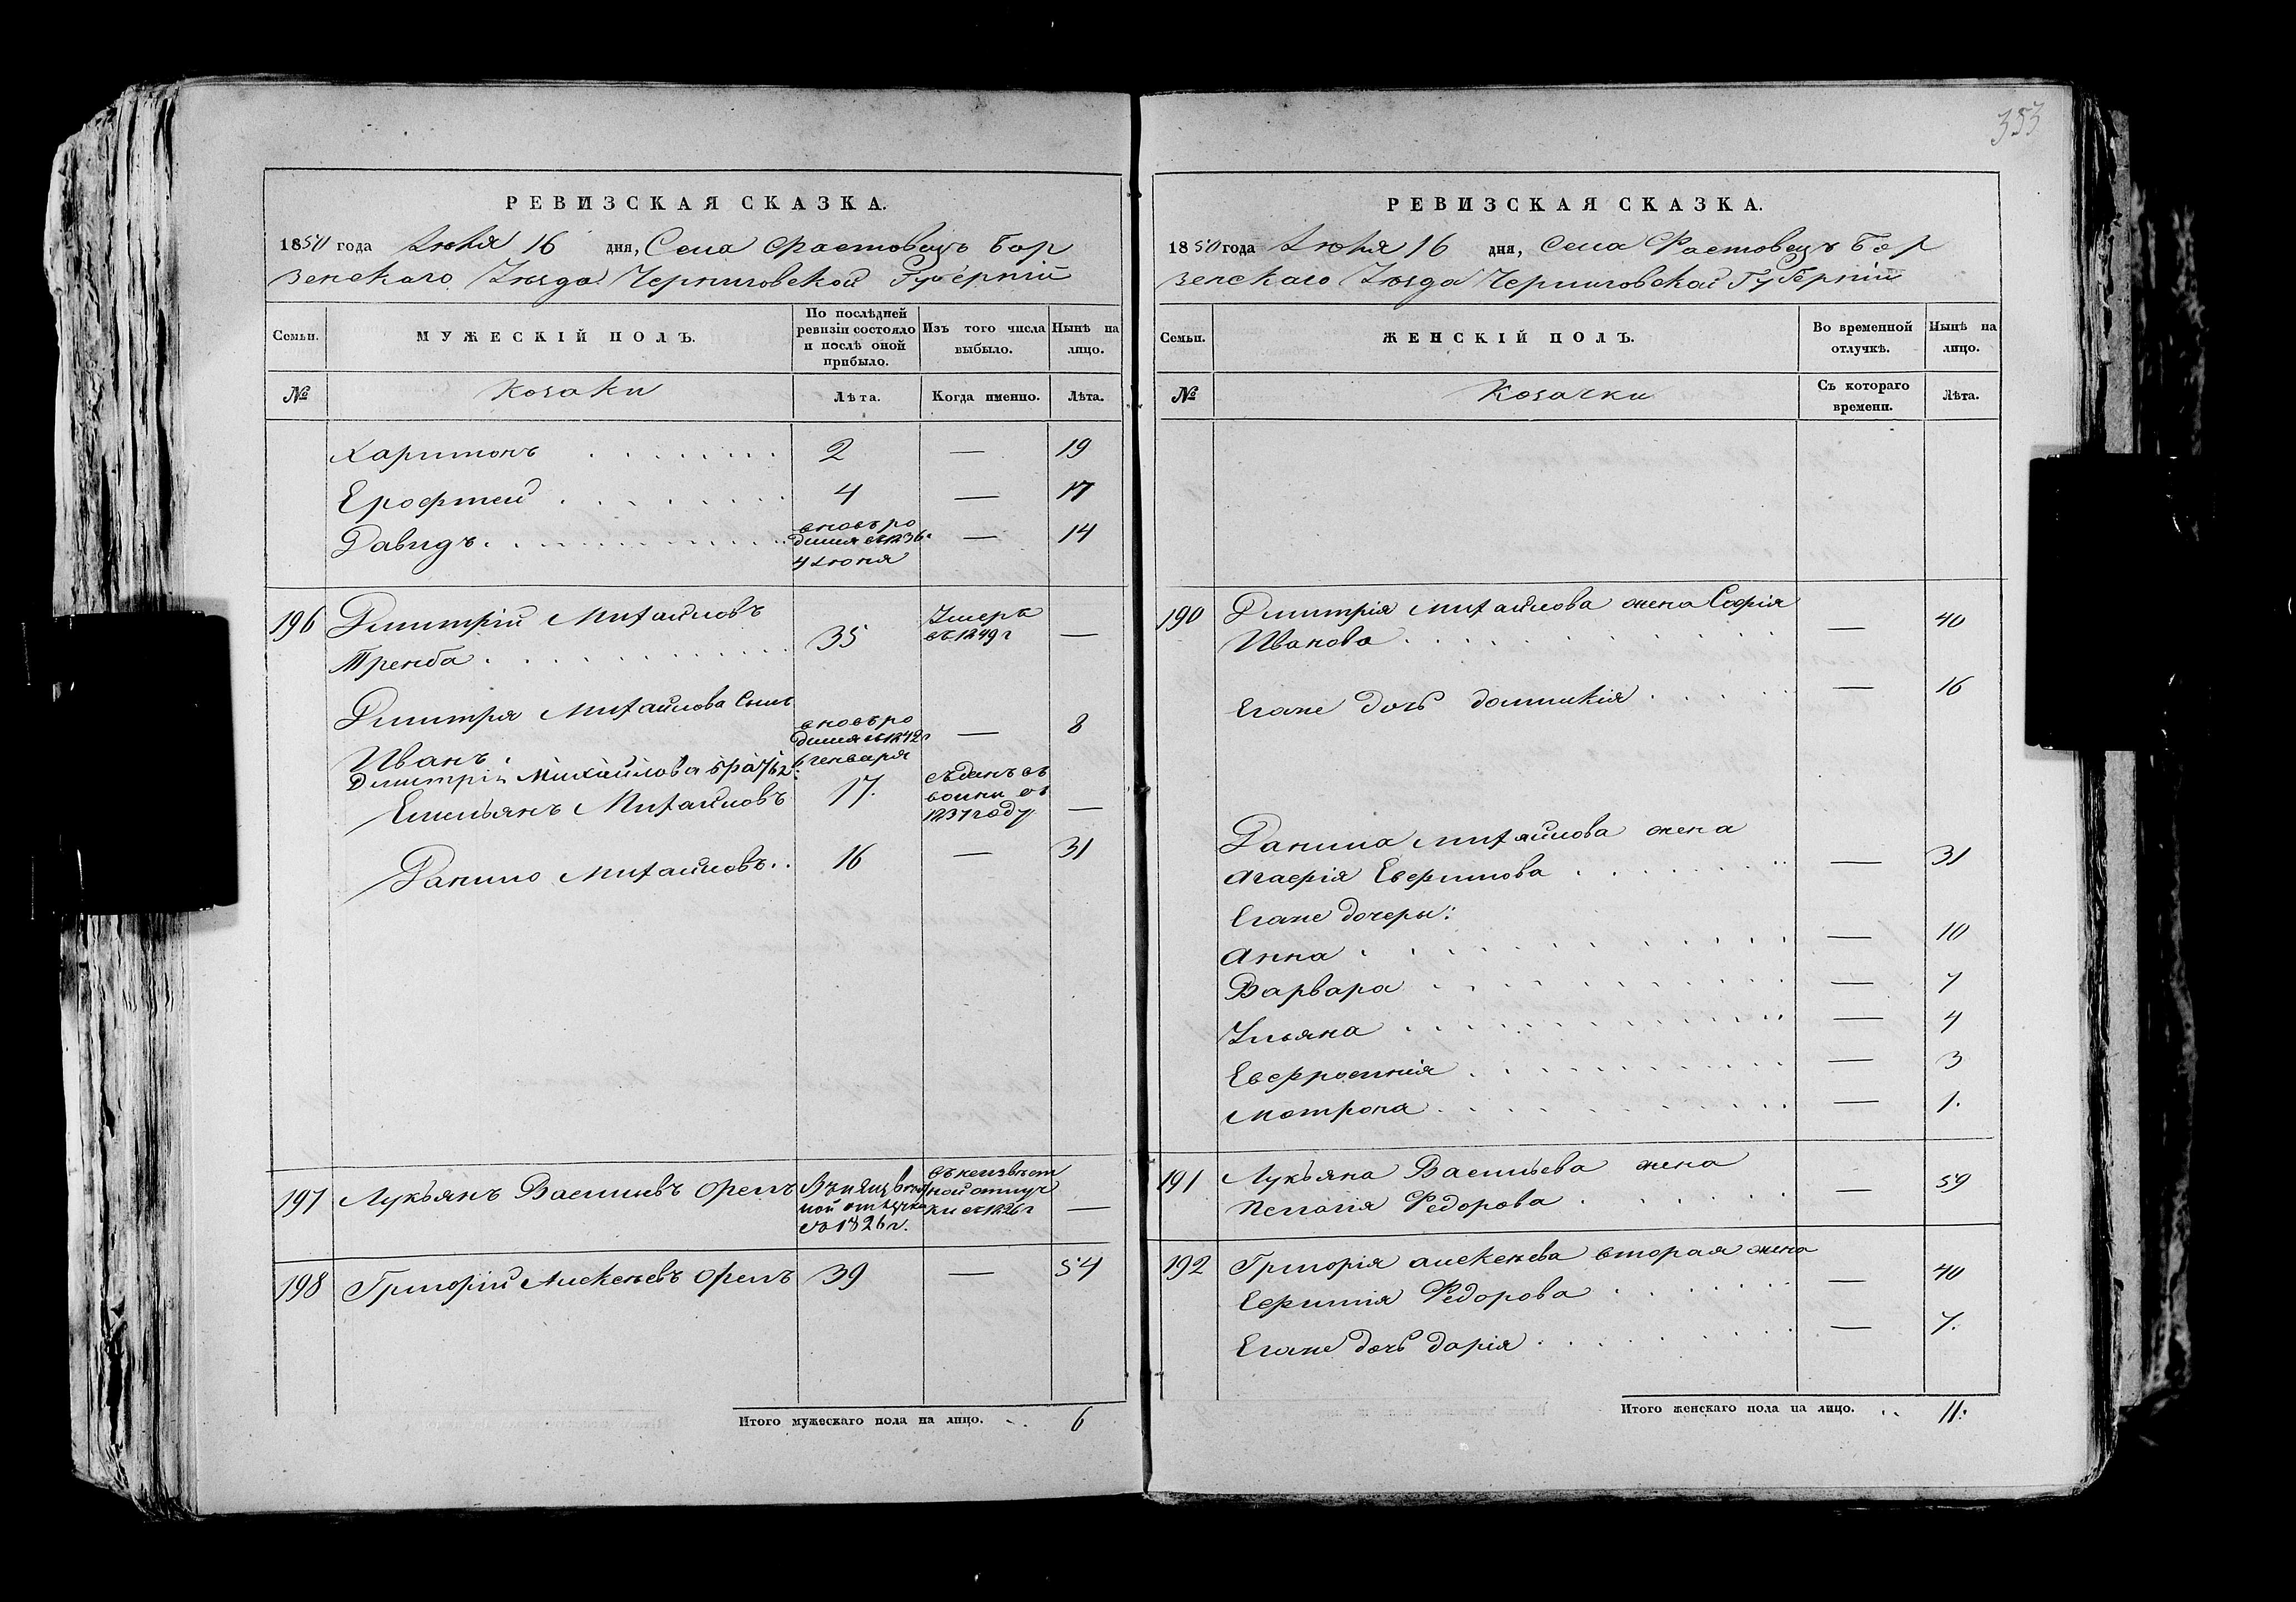 353
РЕВИЗСКАЯ СКАЗКА.
1850 года Іюня 16 дня, Села Фастовецъ Бор
зенскаго Уѣзда Черниговской Губерніи
Семьи. МУЖЕСКІЙ ПОЛЪ. По послѣдней ревизіи состояло и послѣ оной прибыло. Изъ того числа выбыло. Нынѣ на лицо.
№ Козаки Лѣта. Когда именно. Лѣта.
Харитонъ 2 — 19
Ерофтей 4 — 17
Давидъ вновь ро
дился въ 1836 — 14
4 Іюня
196 Дмитрій Михайловъ Умеръ
Тренба 35 въ 1849 г —
Дмитрія Михайлова Сынъ вновь ро
дился въ 1842 г — 8
Иванъ 6 генваря
Дмитрія Михайлова братья:
Емельянъ Михайловъ 17. въ
1837 году —
Данило Михайловъ 16 — 31
197 Лукьянъ Васильевъ Орелъ въ неизвѣст
ной отлучкѣ ной отлуч
съ 1826 г. ки съ 1826 г —
198 Григорій Алексѣевъ Орелъ 39 — 54
Итого мужескаго пола на лицо. 6
РЕВИЗСКАЯ СКАЗКА.
1850 года Іюня 16 дня, Села Фастовецъ Бор
зенскаго Уѣзда Черниговской Губерніи
Семьи. ЖЕНСКІЙ ПОЛЪ. Во временной отлучкѣ. Нынѣ на лицо.
№ Козачки Съ котораго времени. Лѣта.
190 Дмитрія Михайлова жена Софія
Иванова — 40
Егоже дочь Домникія — 16
Данила Михайлова жена
Агафія Евфимова — 31
Егоже дочеры:
Анна — 10
Варвара — 7
Ульяна — 4
Евфросинія — 3
Мотрона — 1.
191 Лукьяна Васильева жена
Пелагія Федорова — 59
192 Григорія Алексѣева вторая жена
Ефимія Федорова — 40
Егоже дочь Дарія — 7.
Итого женскаго пола на лицо. 11.